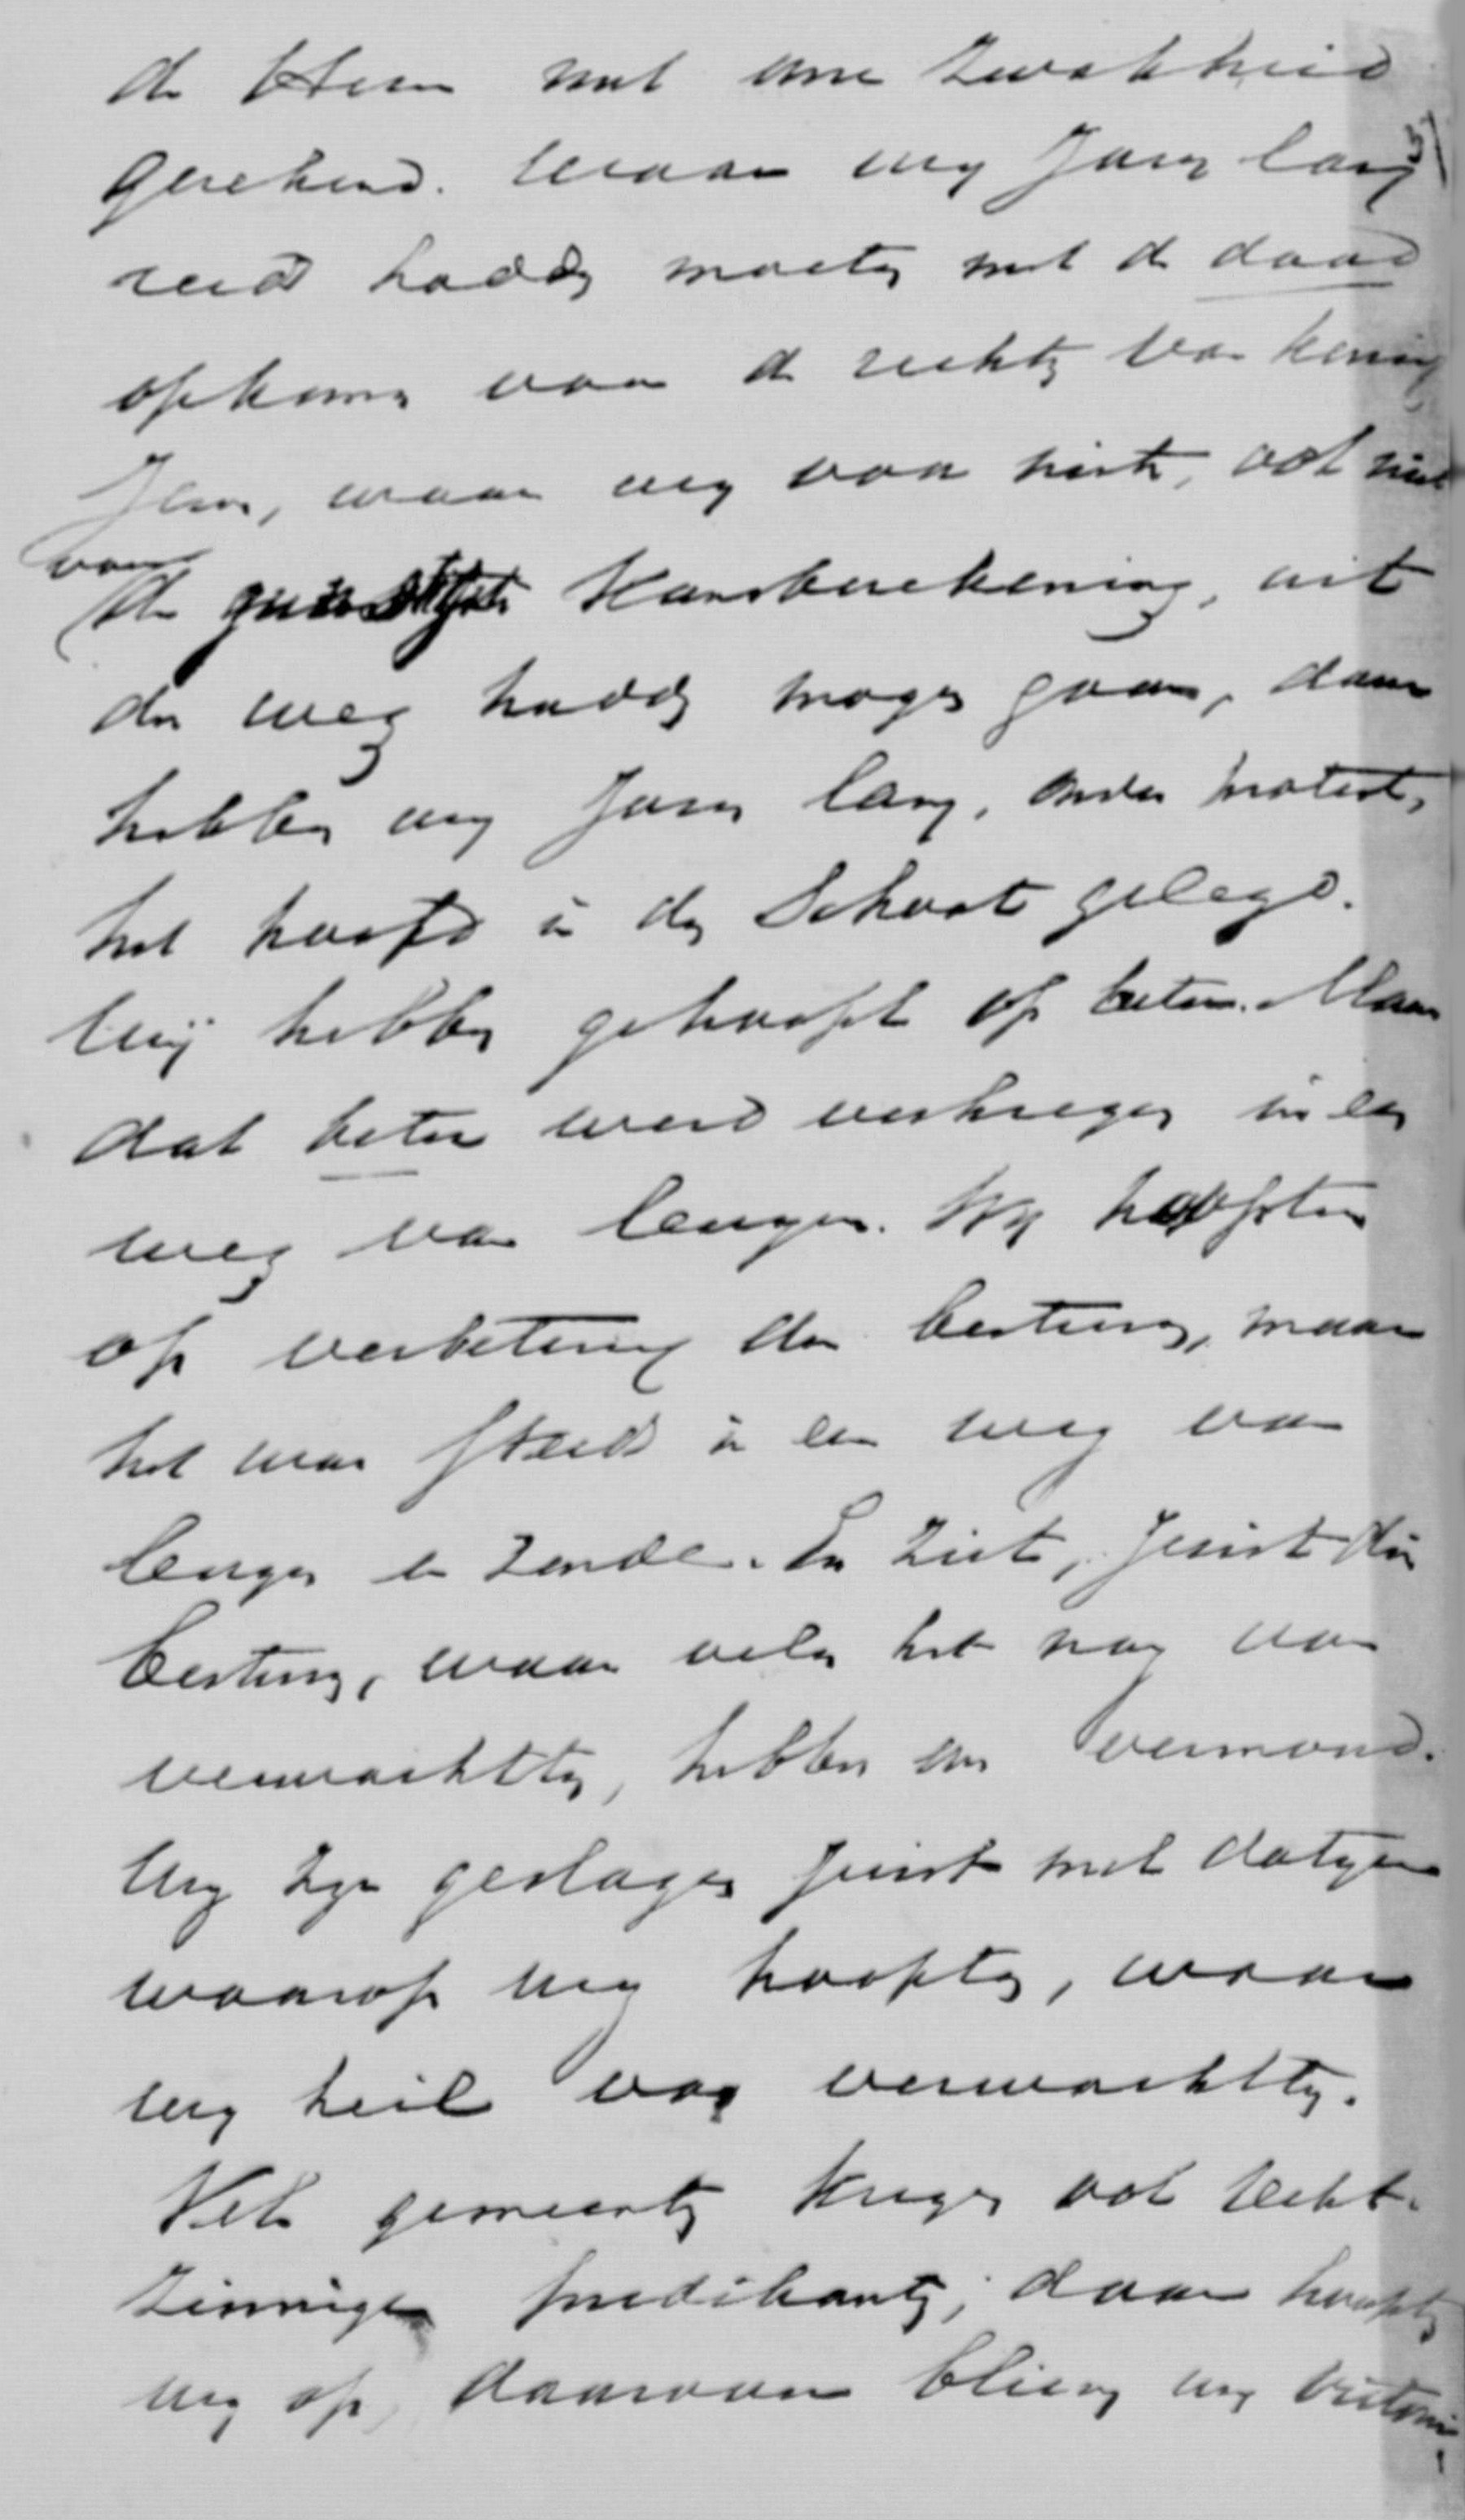 de Heere met onze zwakheid
gerekend. Waar wij Jaren lang
reeds hadden moeten met de daad
opkomen voor de rechten van Koning
Jezus, waar wij voor niets, ook niet
voor
de Kansberekening, uit
den weg hadden mogen gaan, daar
hebben wij Jaren lang, onder protest,
het hoofd in den Schoot gelegd.
Wij hebben gehoopt op beter. Maar
dat beter werd verkregen in een
weg van leugen. Wij hoopten
op verbetering der besturen, maar
het was steeds in een weg van
leugen en zonde. En ziet, juist die
besturen, waar velen het nog van
verwachtten, hebben ons vermoord.
Wij zijn geslagen juist met datgene
waarop wij hoopten, waar
wij heil van verwachtten.
Vele gemeenten kregen ook recht-
zinnige predikanten; daar hoopten
wij op, daarvoor bleven wij